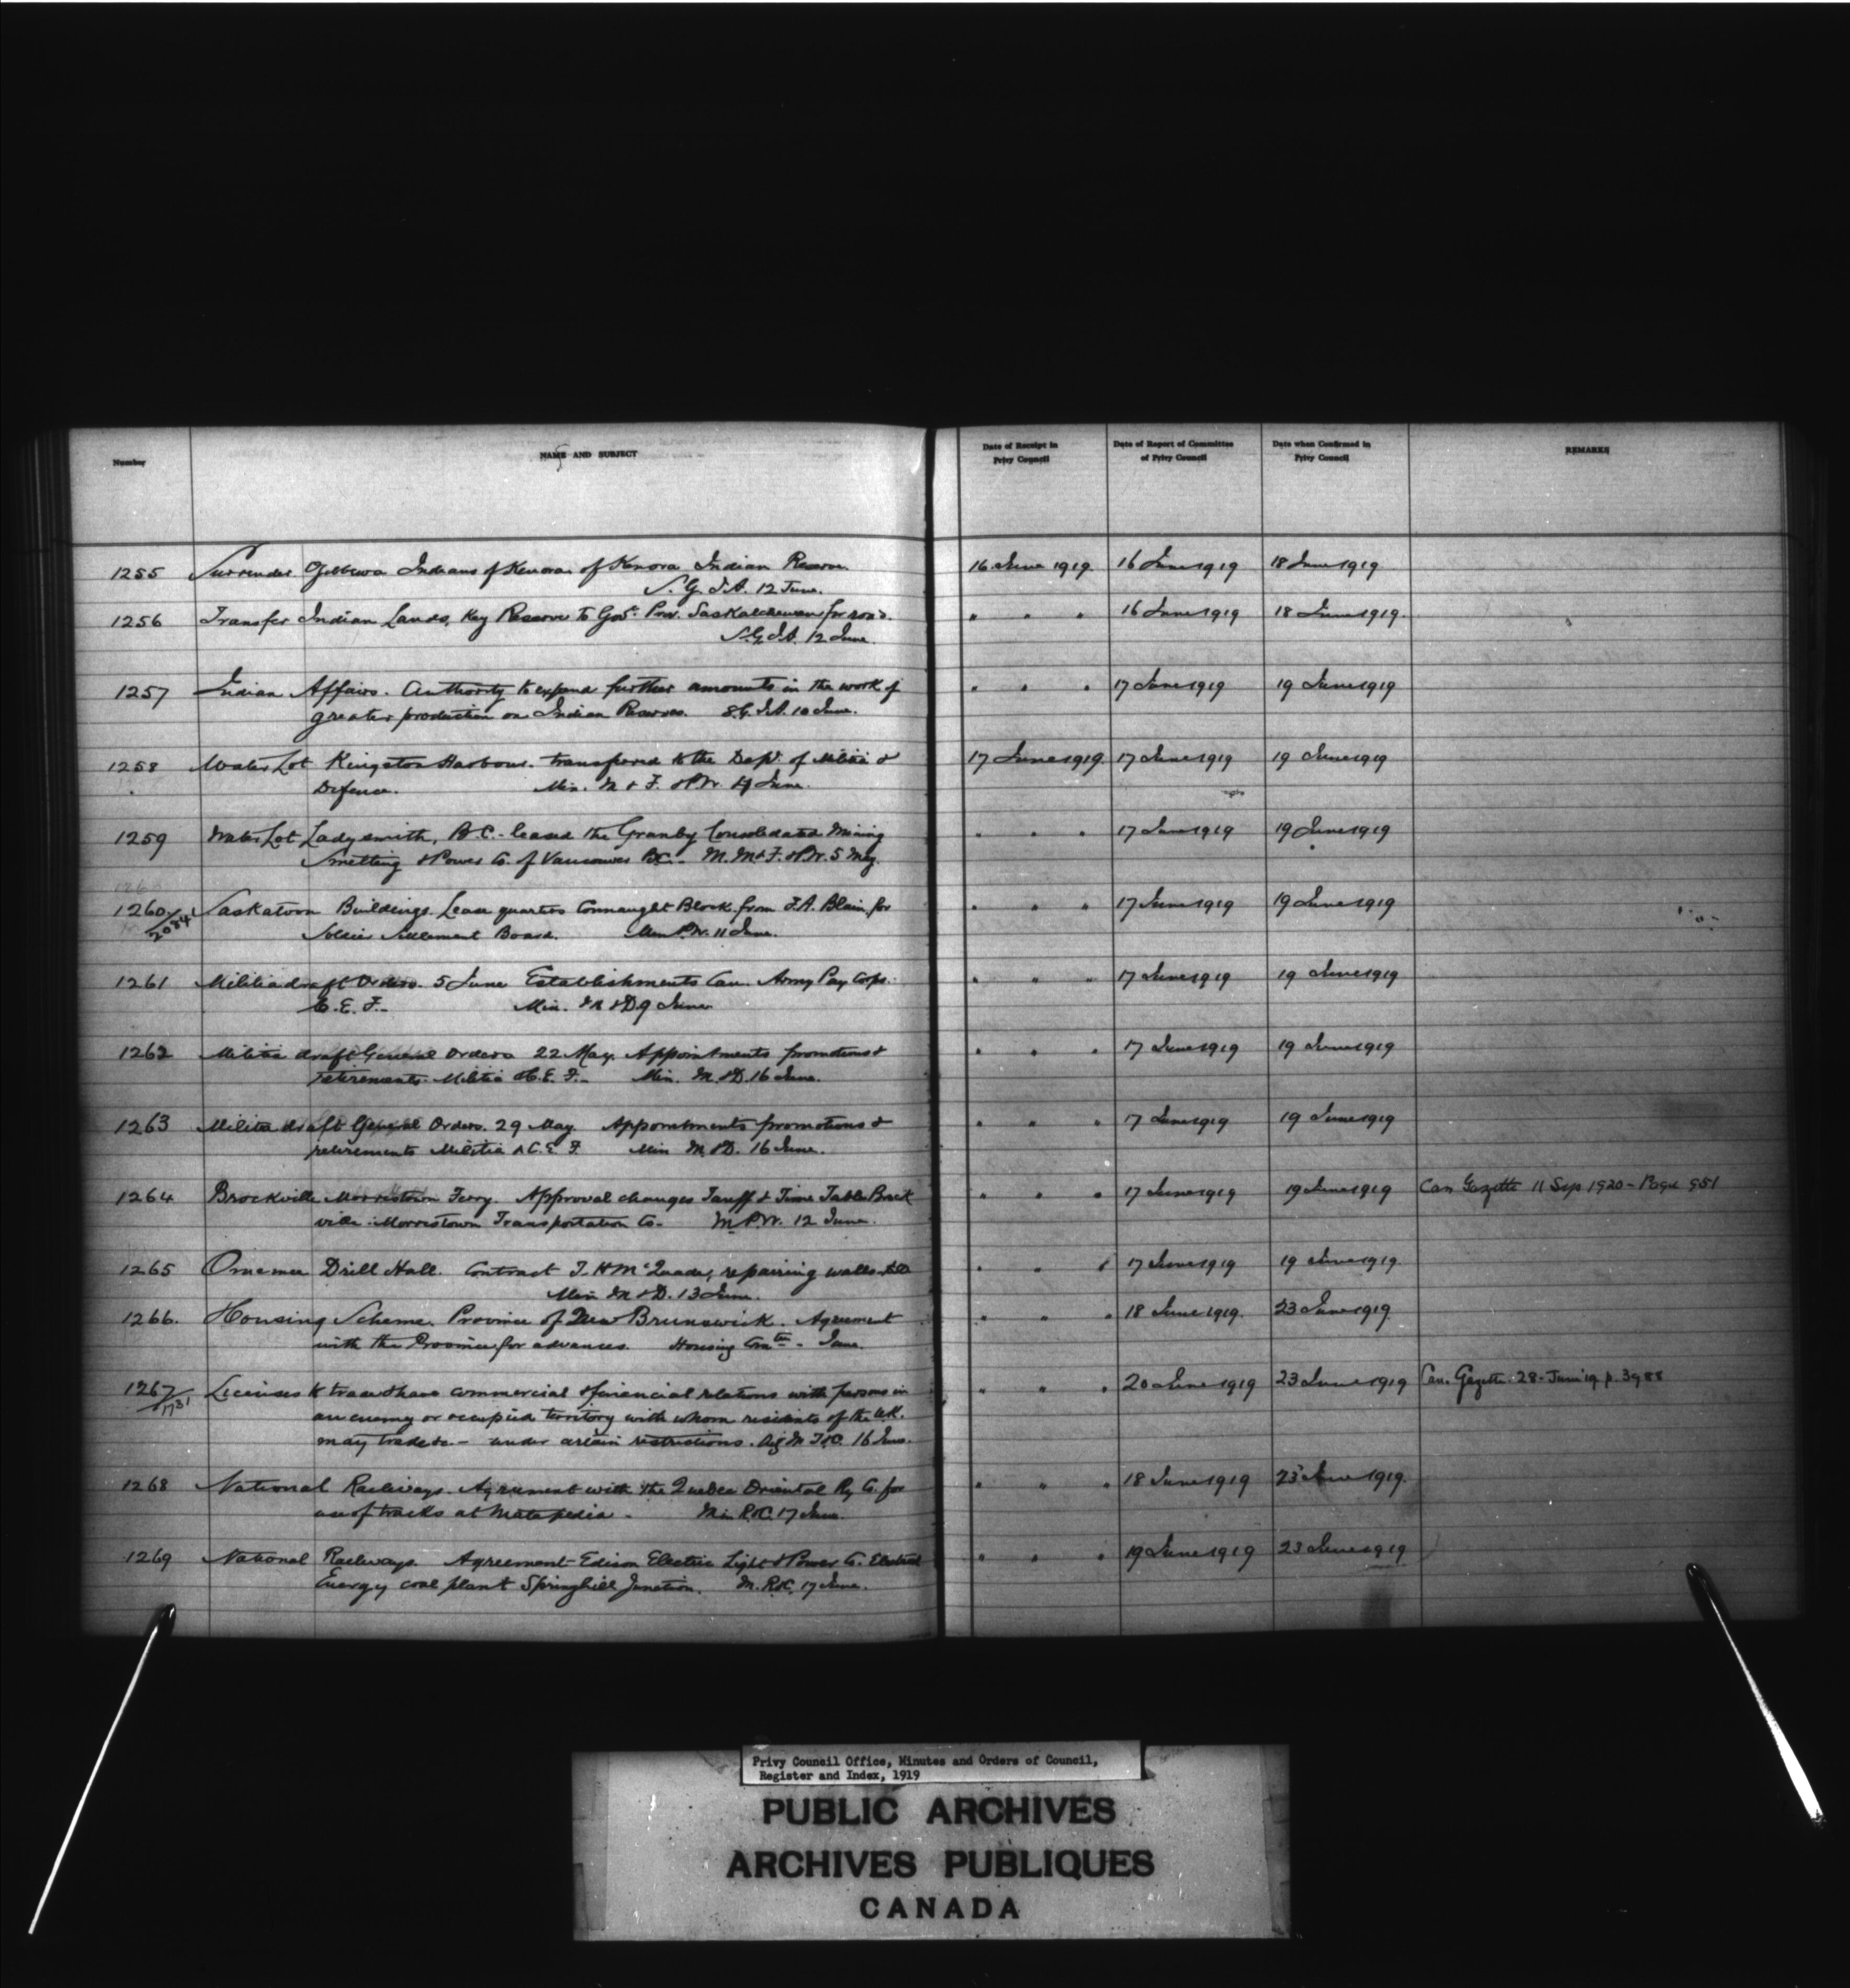 Number
NAME AND SUBJECT
Date of Receipt in Privy Council
Date of Report of Committee of Privy Council
Date when Confirmed in Privy Council
REMARKS
1255 Surrender Ojibewa Indians of Kenora of Kenora Indian Reserve. 16 June 1919 16 June 1919 18 June 1919
S. G. I. A. 12 June.
1256 Transfer Indian Lands, Key Reserve to Govt. Prov. Saskatchewan for road. " " " 16 June 1919 18 June 1919
S. G. I. A. 12 June
1257 Indian Affairs. Authority to expend further amounts in the work of " " " 17 June 1919 19 June 1919
greater production on Indian Reserves. S. G. I. A. 10 June.
1258 Water Lot Kingston Harbour. transferred to the Dept. of Militia & 17 June 1919 17 June 1919 19 June 1919
Defence. Min. M & F. & P.W. June.
1259 Water Lot Ladysmith, B.C. - leased the Granby Consolidated Mining " " " 17 June 1919 19 June 1919
Smelting & Power Co. of Vancouver B.C. - M. M & F. & P.W. 5 May.
1260/2034 Saskatoon Buildings. Lease quarters Connaught Block from J.A. Blain for " " " 17 June 1919 19 June 1919
Soldier Settlement Board. Min P.W. 11 June.
1261 Militia draft Orders. 5 June Establishments Can. Army Pay Corps. " " " 17 June 1919 19 June 1919
C.E.F. - Min. M & D 9 June
1262 Militia draft General Orders 22 May. Appointments promotions & " " " 17 June 1919 19 June 1919
retirements. Militia & C.E.F. - Min. M. & D. 16 June.
1263 Militia draft General Orders. 29 May. Appointments promotions & " " " 17 June 1919 19 June 1919
retirements Militia & C.E.F. Min M. & D. 16 June.
1264 Brockville Morristown Ferry. Approval changes Tariff & Time Table Brock " " " 17 June 1919 19 June 1919 Can Gazette 11 Sep 1920 - Page 951
ville - Morristown Transportation Co. - M.P.W. 12 June.
1265 Omemee Drill Hall. Contract T. H McQuade, repairing walls " " " 17 June 1919 19 June 1919.
Min M & D. 13 June.
1266. Housing Scheme. Province of New Brunswick. Agreement " " " 18 June 1919. 23 June 1919.
with the Province for advances. Housing Comtee - June.
1267/1731 Licenses to trade & have commercial & financial relations with persons in " " " 20 June 1919 23 June 1919 Can. Gazette. 28 June '19 p. 3988
an enemy or occupied territory with whom residents of the U.K.
may trade &c. - under certain restrictions. Ag M T & C. 16 June.
1268 National Railways. Agreement with the Quebec Oriental Ry Co. for " " " 18 June 1919 23 June 1919.
use of tracks at Matapedia - Min R. & C. 17 June.
1269 National Railways. Agreement - Edison Electric Light & Power Co. Electrical " " " 19 June 1919 23 June 1919
Energy coal plant Springhill Junction. M. R. & C. 17 June.
Privy Council Office, Minutes and Orders of Council,
Register and Index, 1919
PUBLIC ARCHIVES
ARCHIVES PUBLIQUES
CANADA